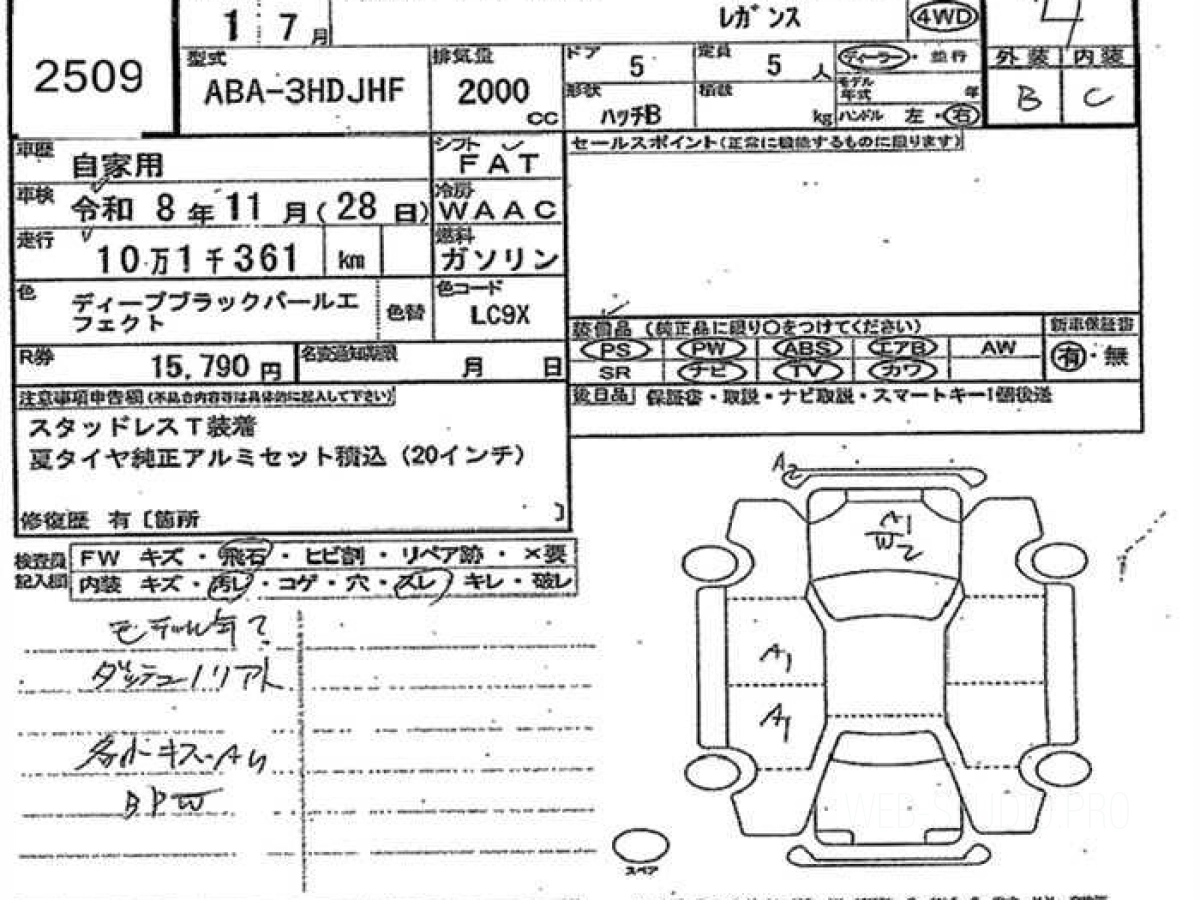 1 7月 レガンス 4WD 4
2509
型式 ABA-3HDJHF 排気量 2000 cc
ドア 5 定員 5 人 ディーラー・並行 外装 内装
形状 ハッチB 積載 kg モデル年式 年 B C
ハンドル 左・右
車歴 自家用 シフト FAT
セールスポイント(正常に機能するものに限ります)
車検 令和 8年 11月(28日) 冷房 WAAC
走行 10万1千361 km 燃料 ガソリン
色 ディープブラックパールエ
フェクト 色替 色コード LC9X
R券 15,790円 名変通知期限 月 日
装備品 (純正品に限り○をつけてください) 新車保証書
PS PW ABS エアB AW 有・無
SR ナビ TV カワ
後日品 保証書・取説・ナビ取説・スマートキー1個後送
注意事項申告欄(不具合内容等は具体的に記入して下さい)
スタッドレスT装着
夏タイヤ純正アルミセット積込(20インチ)
修復歴 有〔箇所 〕
検査員 FW キズ・飛石・ヒビ割・リペア跡・×要
記入欄 内装 キズ・汚レ・コゲ・穴・スレ・キレ・破レ
モデル年?
A2
A1
W2
A1
A1
BPW
スペア
WEB STUDIO.PRO